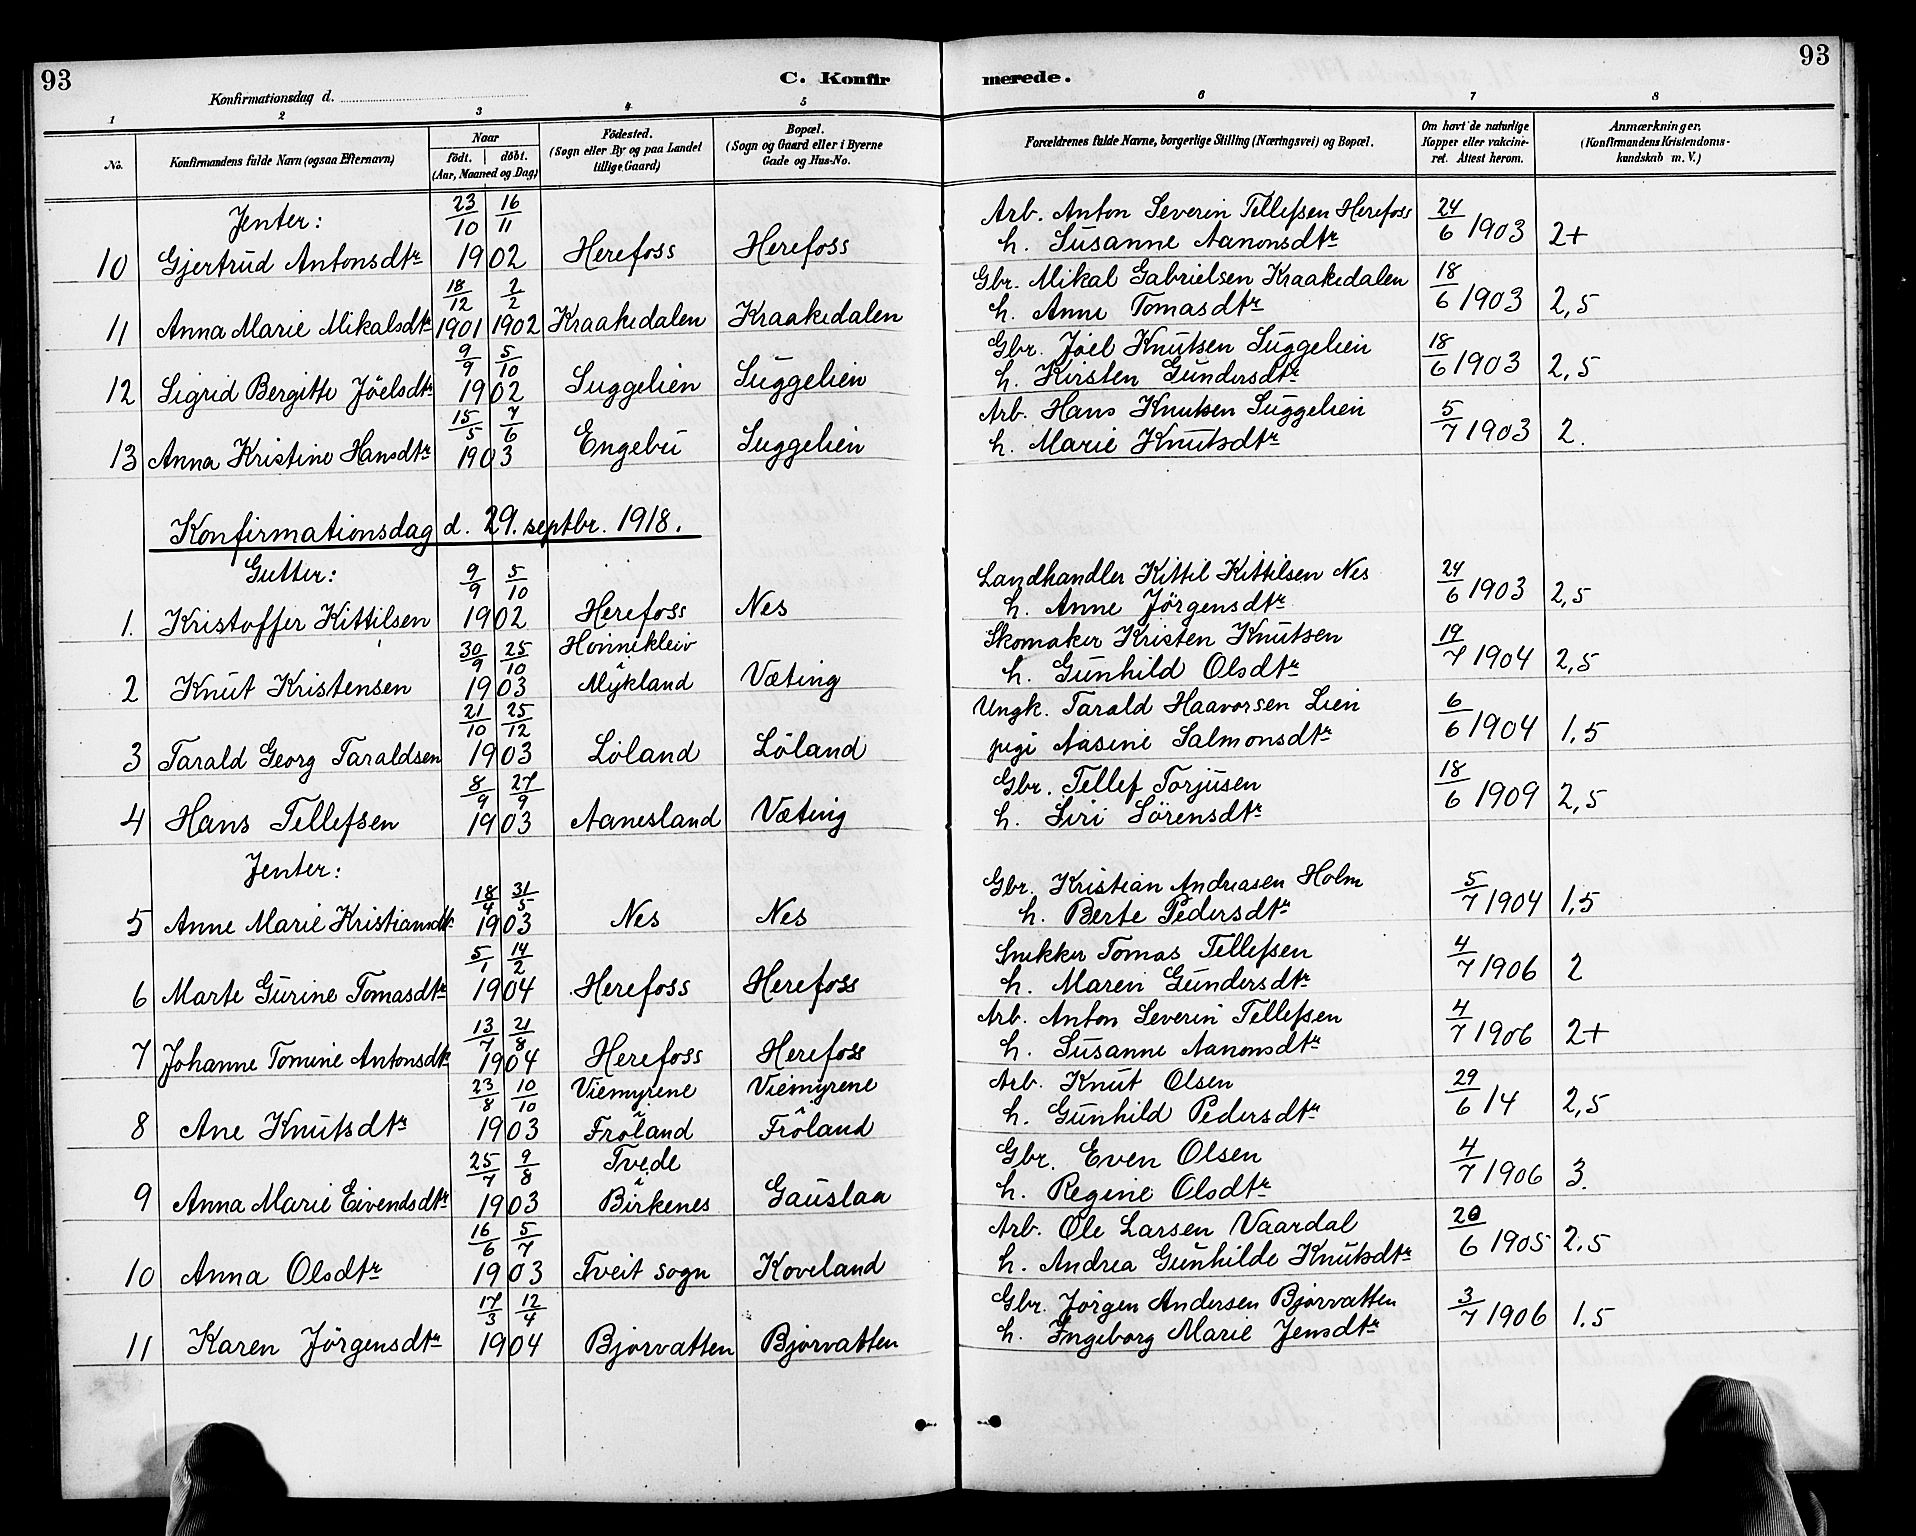 93
C. Konfirmerede.
93
Konfirmationsdag d.
1 2 3 4 5 6 7 8
No.
Konfirmandens fulde Navn (ogsaa Efternavn)
Naar
født. døbt.
(Aar, Maaned og Dag)
Fødested.
(Sogn eller By og paa Landet
tillige Gaard)
Bopæl.
(Sogn og Gaard eller i Byerne
Gade og Hus-No.
Forældrenes fulde Navne, borgerlige Stilling (Næringsvei) og Bopæl.
Om havt de naturlige
Kopper eller vakcine-
ret. Attest herom.
Anmærkninger.
(Konfirmandens Kristendoms-
kundskab m. V.)
Jenter: 23/10 16/11 Arb. Anton Severin Tellefsen Herefoss
10 Gjertrud Antonsdtr 1902 Herefoss Herefoss h. Susanne Aanonsdtr 24/6 1903 2+
18/12 2/2 Gbr. Mikal Gabrielsen Kraakedalen
11 Anna Marie Mikalsdtr 1901 1902 Kraakedalen Kraakedalen h. Anne Tomasdtr 18/6 1903 2,5
9/9 5/10 Gbr. Joel Knutsen Suggelien
12 Sigrid Bergitte Jöelsdtr 1902 Suggelien Suggelien h. Kirsten Gundersdtr 18/6 1903 2,5
15/5 7/6 Arb. Hans Knutsen Suggelien
13 Anna Kristine Hansdtr 1903 Engebu Suggelien h. Marie Knutsdtr 5/7 1903 2.
Konfirmationsdag d. 29. septbr. 1918.
Gutter: 9/9 5/10 Landhandler Kittil Kittilsen Nes
1. Kristoffer Kittilsen 1902 Herefoss Nes h. Anne Jörgensdtr 24/6 1903 2,5
30/9 25/10 Honnekleiv Skomaker Kristen Knutsen
2 Knut Kristensen 1903 Mykland Væting h. Gunhild Olsdtr 19/7 1904 2,5
21/10 25/12 Ungk. Tarald Haavorsen Lien
3 Tarald Georg Taraldsen 1903 Löland Löland pige Aasine Salmonsdtr 6/6 1904 1.5
8/9 27/9 Gbr. Tellef Torjusen
4 Hans Tellefsen 1903 Aanesland Væting h. Siri Sörensdtr 18/6 1909 2,5
Jenter: 18/4 31/5 Gbr. Kristian Andreasen Holm
5 Anne Marie Kristiansdtr 1903 Nes Nes h. Berte Pedersdtr 5/7 1904 1,5
5/1 14/2 Snekker Tomas Tellefsen
6 Marte Gurine Tomasdtr 1904 Herefoss Herefoss h. Maren Gundersdtr 4/7 1906 2
13/7 21/8 Arb. Anton Severin Tellefsen
7 Johanne Tomine Antonsdtr 1904 Herefoss Herefoss h. Susanne Aanonsdtr 4/7 1906 2+
23/8 10/10 Viemyrene Viemyrene Arb. Knut Olsen
8 Ane Knutsdtr 1903 Fröland Fröland h. Gunhild Pedersdtr 29/6 14 2,5
25/7 9/8 Tvede Gbr. Even Olsen
9 Anna Marie Eivendsdtr 1903 Birkenes Gauslaa h. Regine Olsdtr 4/7 1906 3.
16/6 5/7 Arb. Ole Larsen Vaardal
10 Anna Olsdtr 1903 Tveit sogn Koveland h. Andrea Gunhilde Knutsdtr 20/6 1905 2.5
17/3 12/4 Gbr. Jörgen Andersen Bjorvatten
11 Karen Jörgensdtr 1904 Bjorvatten Bjorvatten h. Ingeborg Marie Jensdtr 3/7 1906 1.5